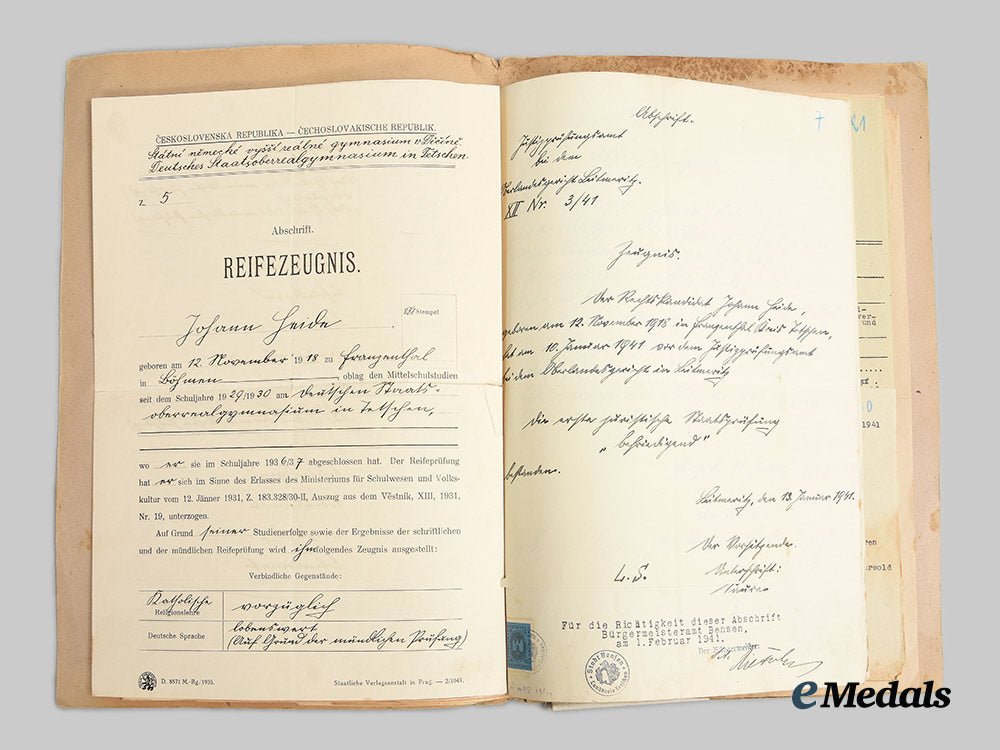 ČESKOSLOVENSKA REPUBLIKA — ČECHOSLOVAKISCHE REPUBLIK.
Státní německé vyšší reálné gymnasium v Děčíně.
Deutsches Staatsoberrealgymnasium in Tetschen.
Z. 5
Abschrift.
REIFEZEUGNIS.
Stempel
Johann Heide
geboren am 12. November 1918 zu Franzenthal
in Böhmen, oblag den Mittelschulstudien
seit dem Schuljahre 1929/1930 am Deutschen Staats-
oberrealgymnasium in Tetschen,
wo er sie im Schuljahre 1936/37 abgeschlossen hat. Der Reifeprüfung
hat er sich im Sinne des Erlasses des Ministeriums für Schulwesen und Volks-
kultur vom 12. Jänner 1931, Z. 183.328/30-II, Auszug aus dem Věstník, XIII, 1931,
Nr. 19, unterzogen.
Auf Grund seiner Studienerfolge sowie der Ergebnisse der schriftlichen
und der mündlichen Reifeprüfung wird ihm folgendes Zeugnis ausgestellt:
Verbindliche Gegenstände:
Katholische
Religionslehre vorzüglich
Deutsche Sprache lobenswert
(Auf Grund der mündlichen Prüfung)
D. 8571 M.-Rg/1935. Staatliche Verlagsanstalt in Prag. — 2/1041.
Abschrift.
7 21
Justizprüfungsamt
bei dem
Oberlandesgericht Leitmeritz.
XII Nr. 3/41
Zeugnis.
Der Rechtskandidat Johann Heide,
geboren am 12. November 1918 in Franzenthal Kreis Tetschen,
hat am 10. Januar 1941 vor dem Justizprüfungsamt
bei dem Oberlandesgericht in Leitmeritz
die erste juristische Staatsprüfung
„befriedigend"
bestanden.
Leitmeritz, den 13. Januar 1941.
Der Vorsitzende.
L.S. Unterschrift:
Für die Richtigkeit dieser Abschrift
Bürgermeisteramt Bensen,
am 1. Februar 1941.
Der Bürgermeister:
Stadt Bensen
ver-
und
1941
eMedals